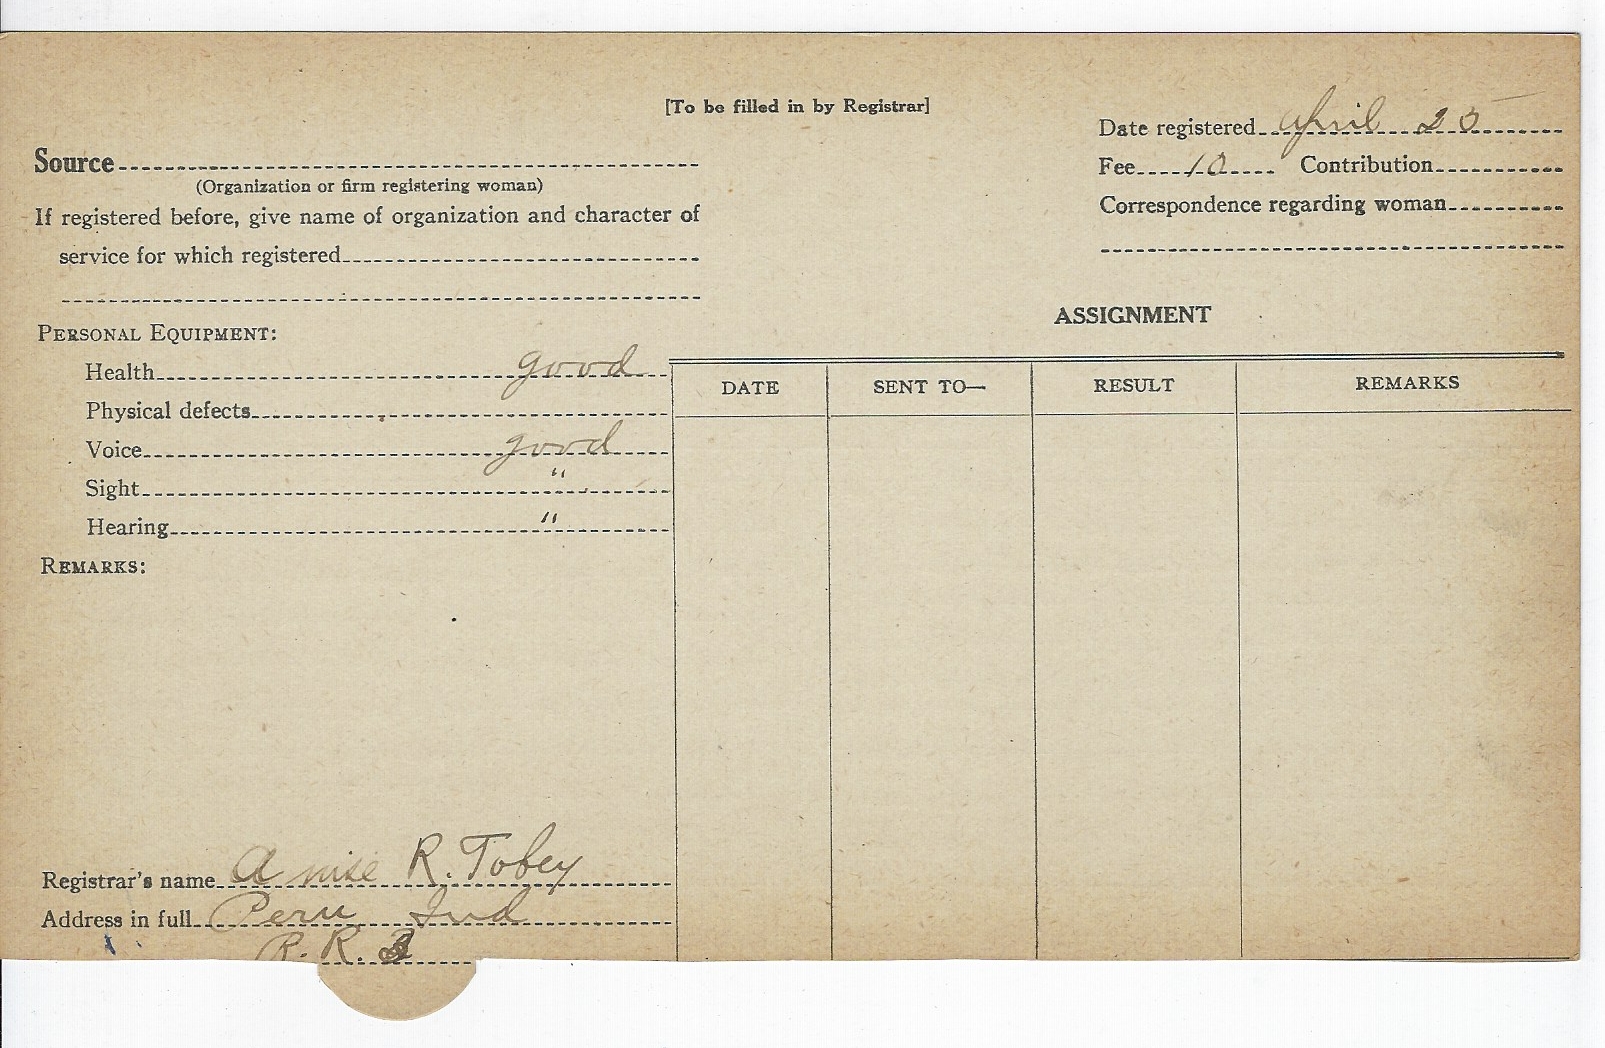 [To be filled in by Registrar]
Date registered April 25
Source
Fee 10 Contribution
(Organization or firm registering woman)
Correspondence regarding woman
If registered before, give name of organization and character of
service for which registered
ASSIGNMENT
PERSONAL EQUIPMENT:
Health good
DATE SENT TO— RESULT REMARKS
Physical defects
Voice good
Sight "
Hearing "
REMARKS:
Registrar's name R. Tobey
Address in full Peru Ind
R. R.